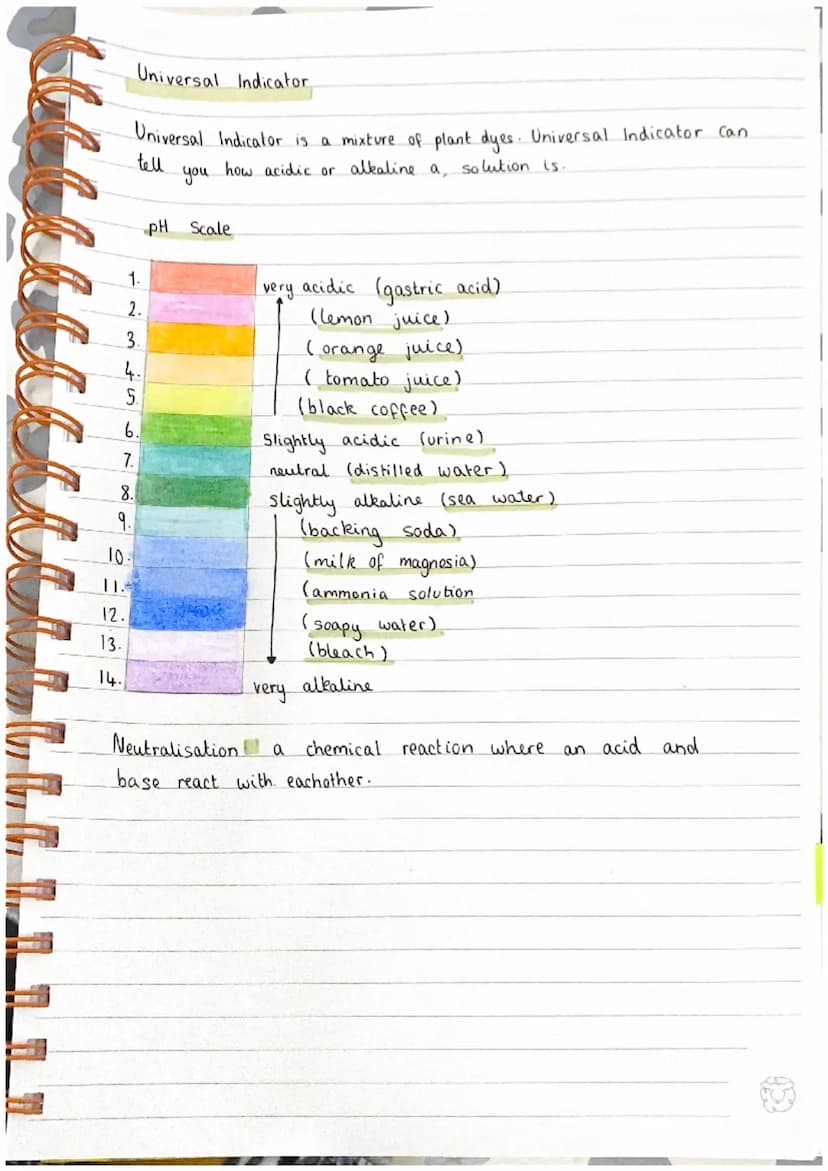 Universal Indicator
Universal Indicator is a mixture of plant dyes. Universal Indicator can
tell you how acidic or alkaline a, solution is.
pH Scale
1. very acidic (gastric acid)
2. (lemon juice)
3. (orange juice)
4. (tomato juice)
5. (black coffee)
6. Slightly acidic (urine)
7. neutral (distilled water)
8. Slightly alkaline (sea water)
9. (backing soda)
10. (milk of magnesia)
11. (ammonia solution
12. (soapy water)
13. (bleach)
14. very alkaline
Neutralisation a chemical reaction where an acid and
base react with eachother.